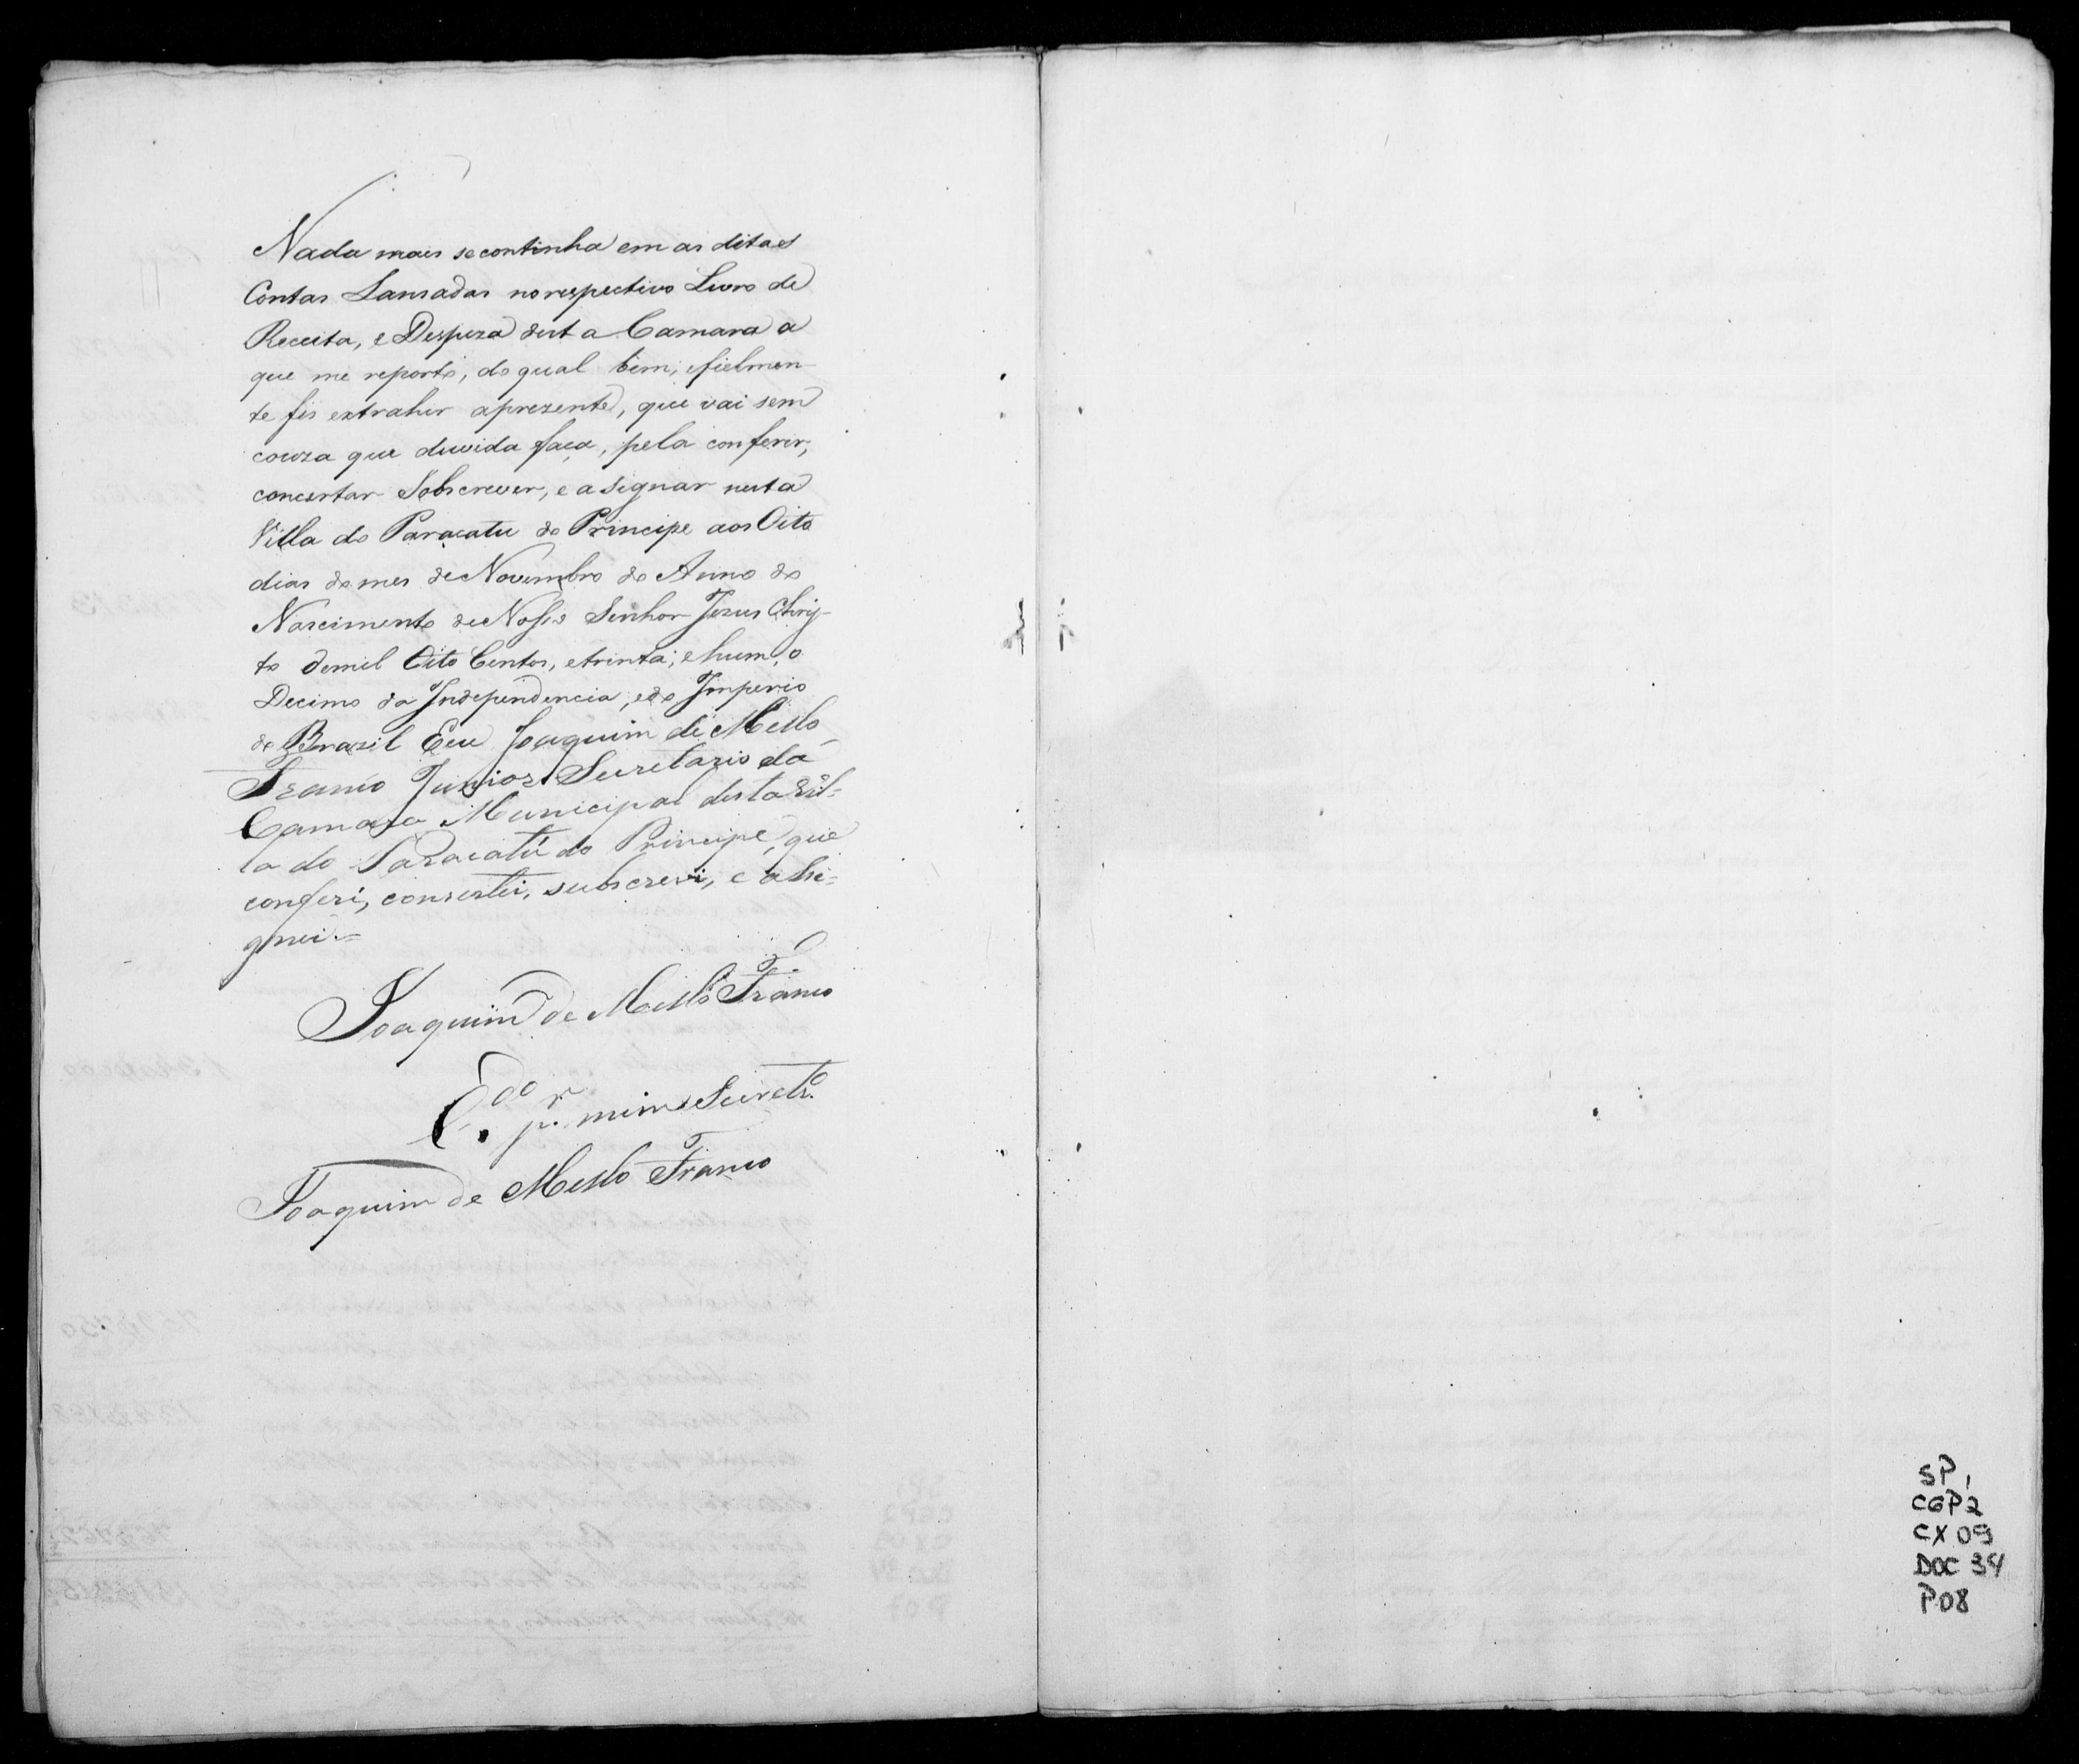 Nada mais se continha em as ditas
Contas Lansadas no respectivo Livro de
Receita, e Despeza desta Camara a
que me reporto, do qual bem, e fielmen-
te fis extrahir aprezente, que vai sem
couza que duvida faça, pela conferir,
concertar Sobscrever, e asignar nesta
Villa do Paracatu do Principe aos Oito
dias do mes de Novembro do Anno do
Nascimento de Nosso Senhor Jezus Chris-
to de mil Oito Centos, e trinta, e hum, o
Decimo da Independencia, e do Imperio
do Brazil Eeu Joaquim de Mello
Franco Junior Secretario da
Camara Municipal desta Vil=
la do Paracatú do Principe, que
conferi, consertei, subscrevi, e assi=
gnei.=
Joaquim de Mello Franco Jr.
C.do pr. mim Secretr.o
Joaquim de Mello Franco
SP,
CGP2
CX 09
DOC 34
P.08